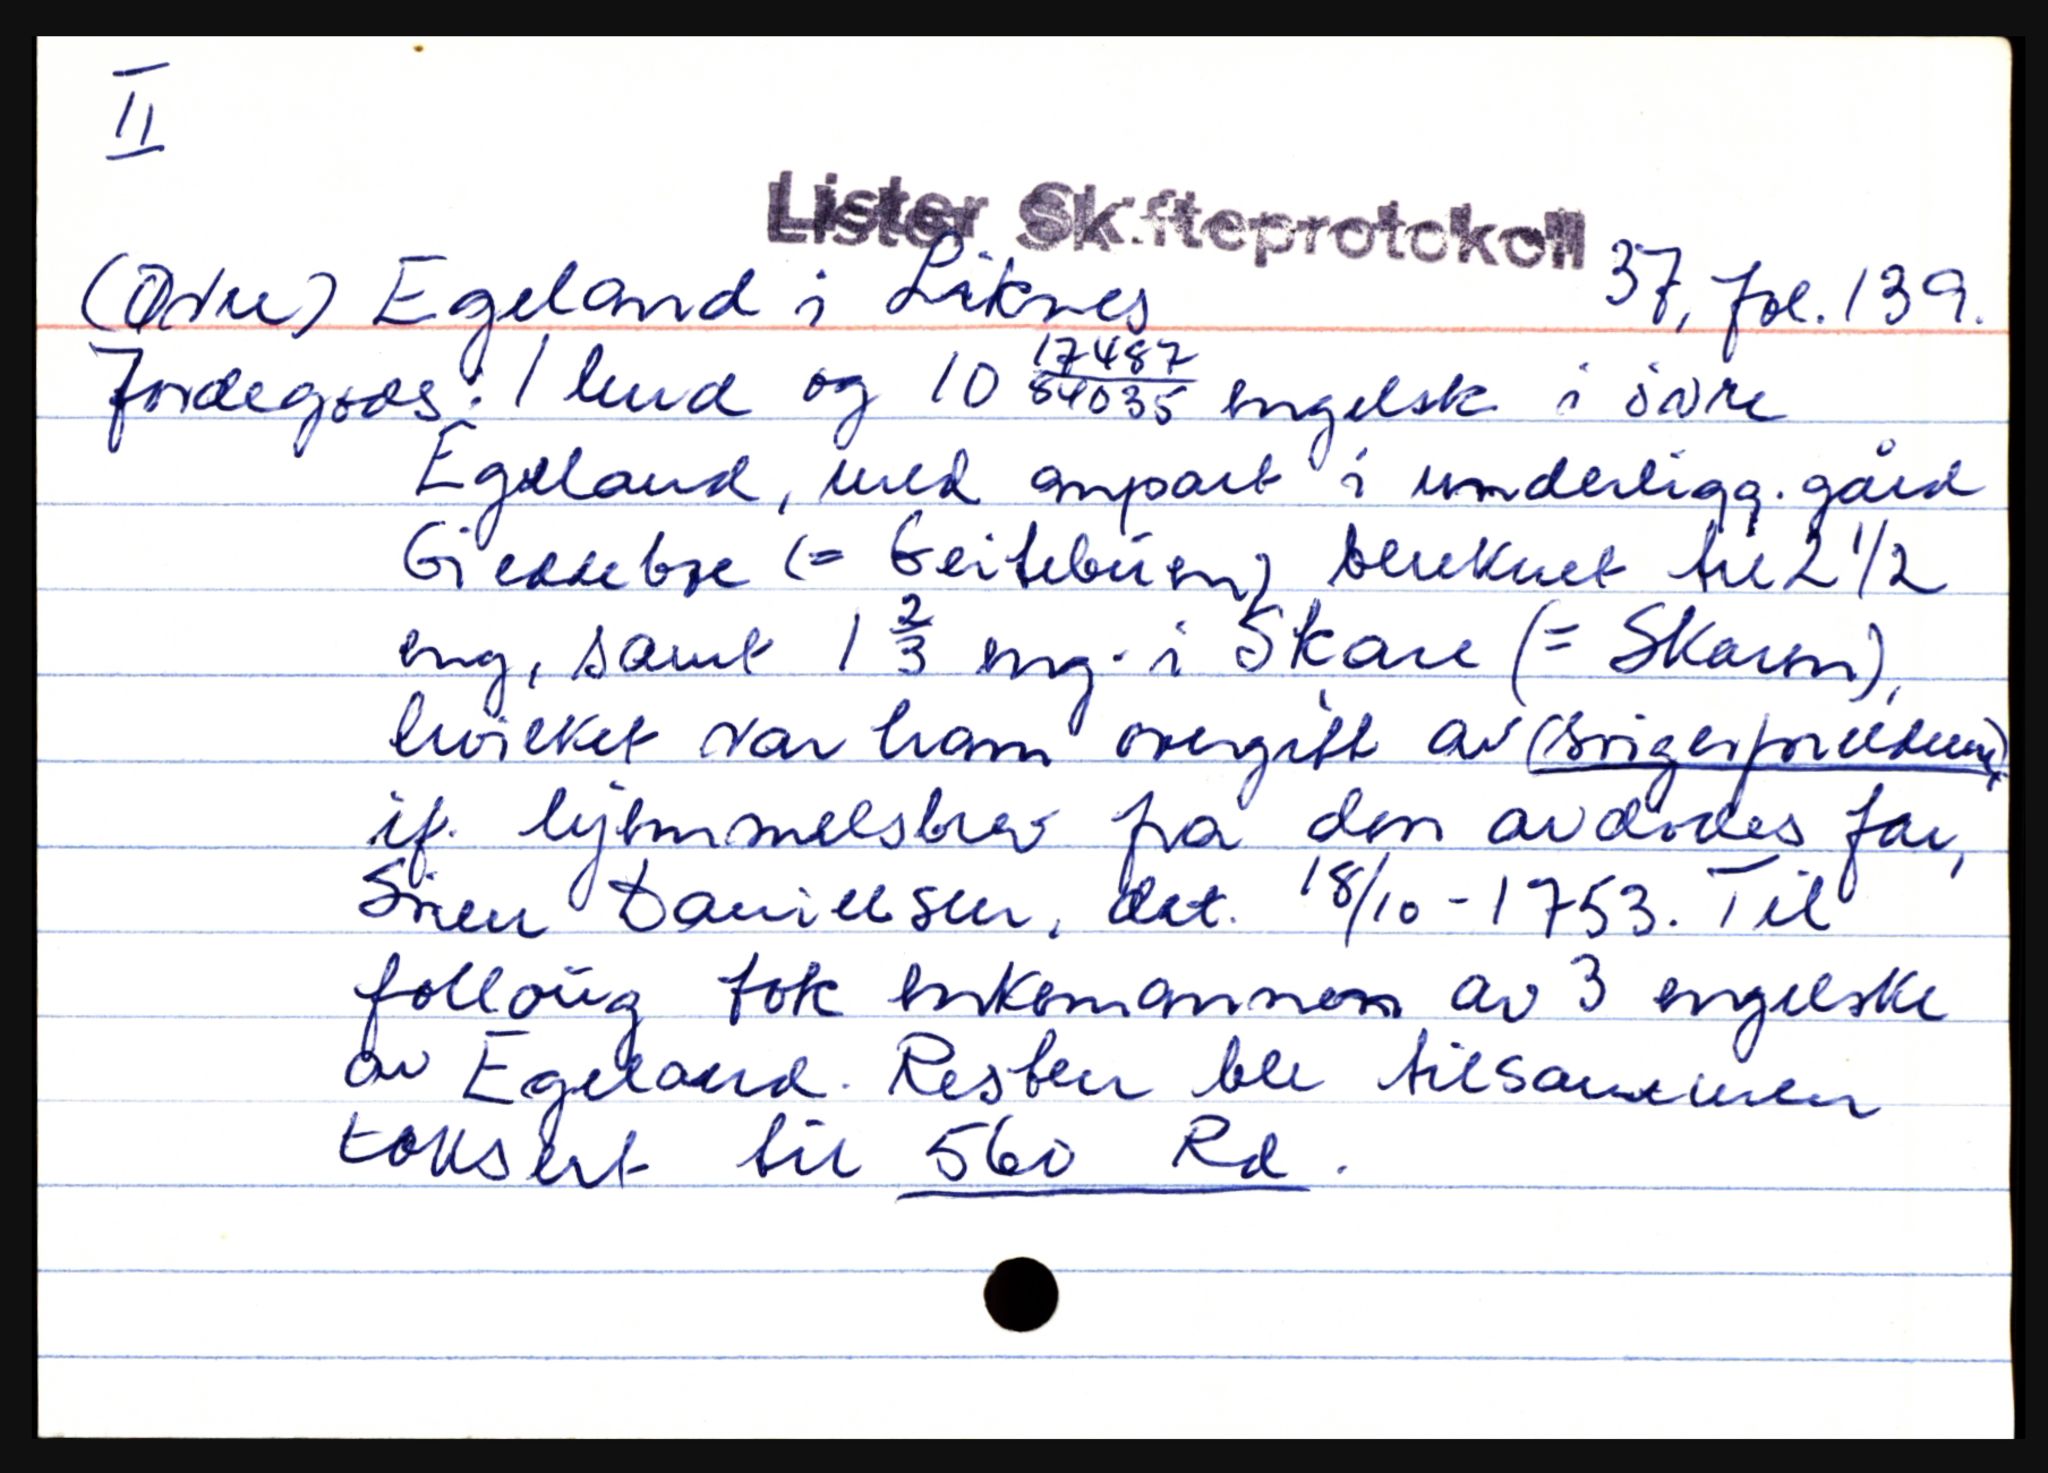 II
Lister Skifteprotokoll
(Øvre) Egeland i Liknes 37, fol. 139.
Jordegods: 1 hud og 10 17487/84035 engelsk i övre
Egeland, med anpart i underligg. gård
Gieddebøe (= Geitebuen) bereknet til 2 1/2
eng, samt 1 2/3 eng. i Skare (= Skaren),
hvilket var ham overgitt av (svigerforeldrene)
if. hjemmelsbrev fra den avdödes far,
Sören Daniellsen, dat. 18/10-1753. Til
follaug tok enkemannen av 3 engelske
av Egeland. Resten ble tilsammen
taksert til 560 Rd.